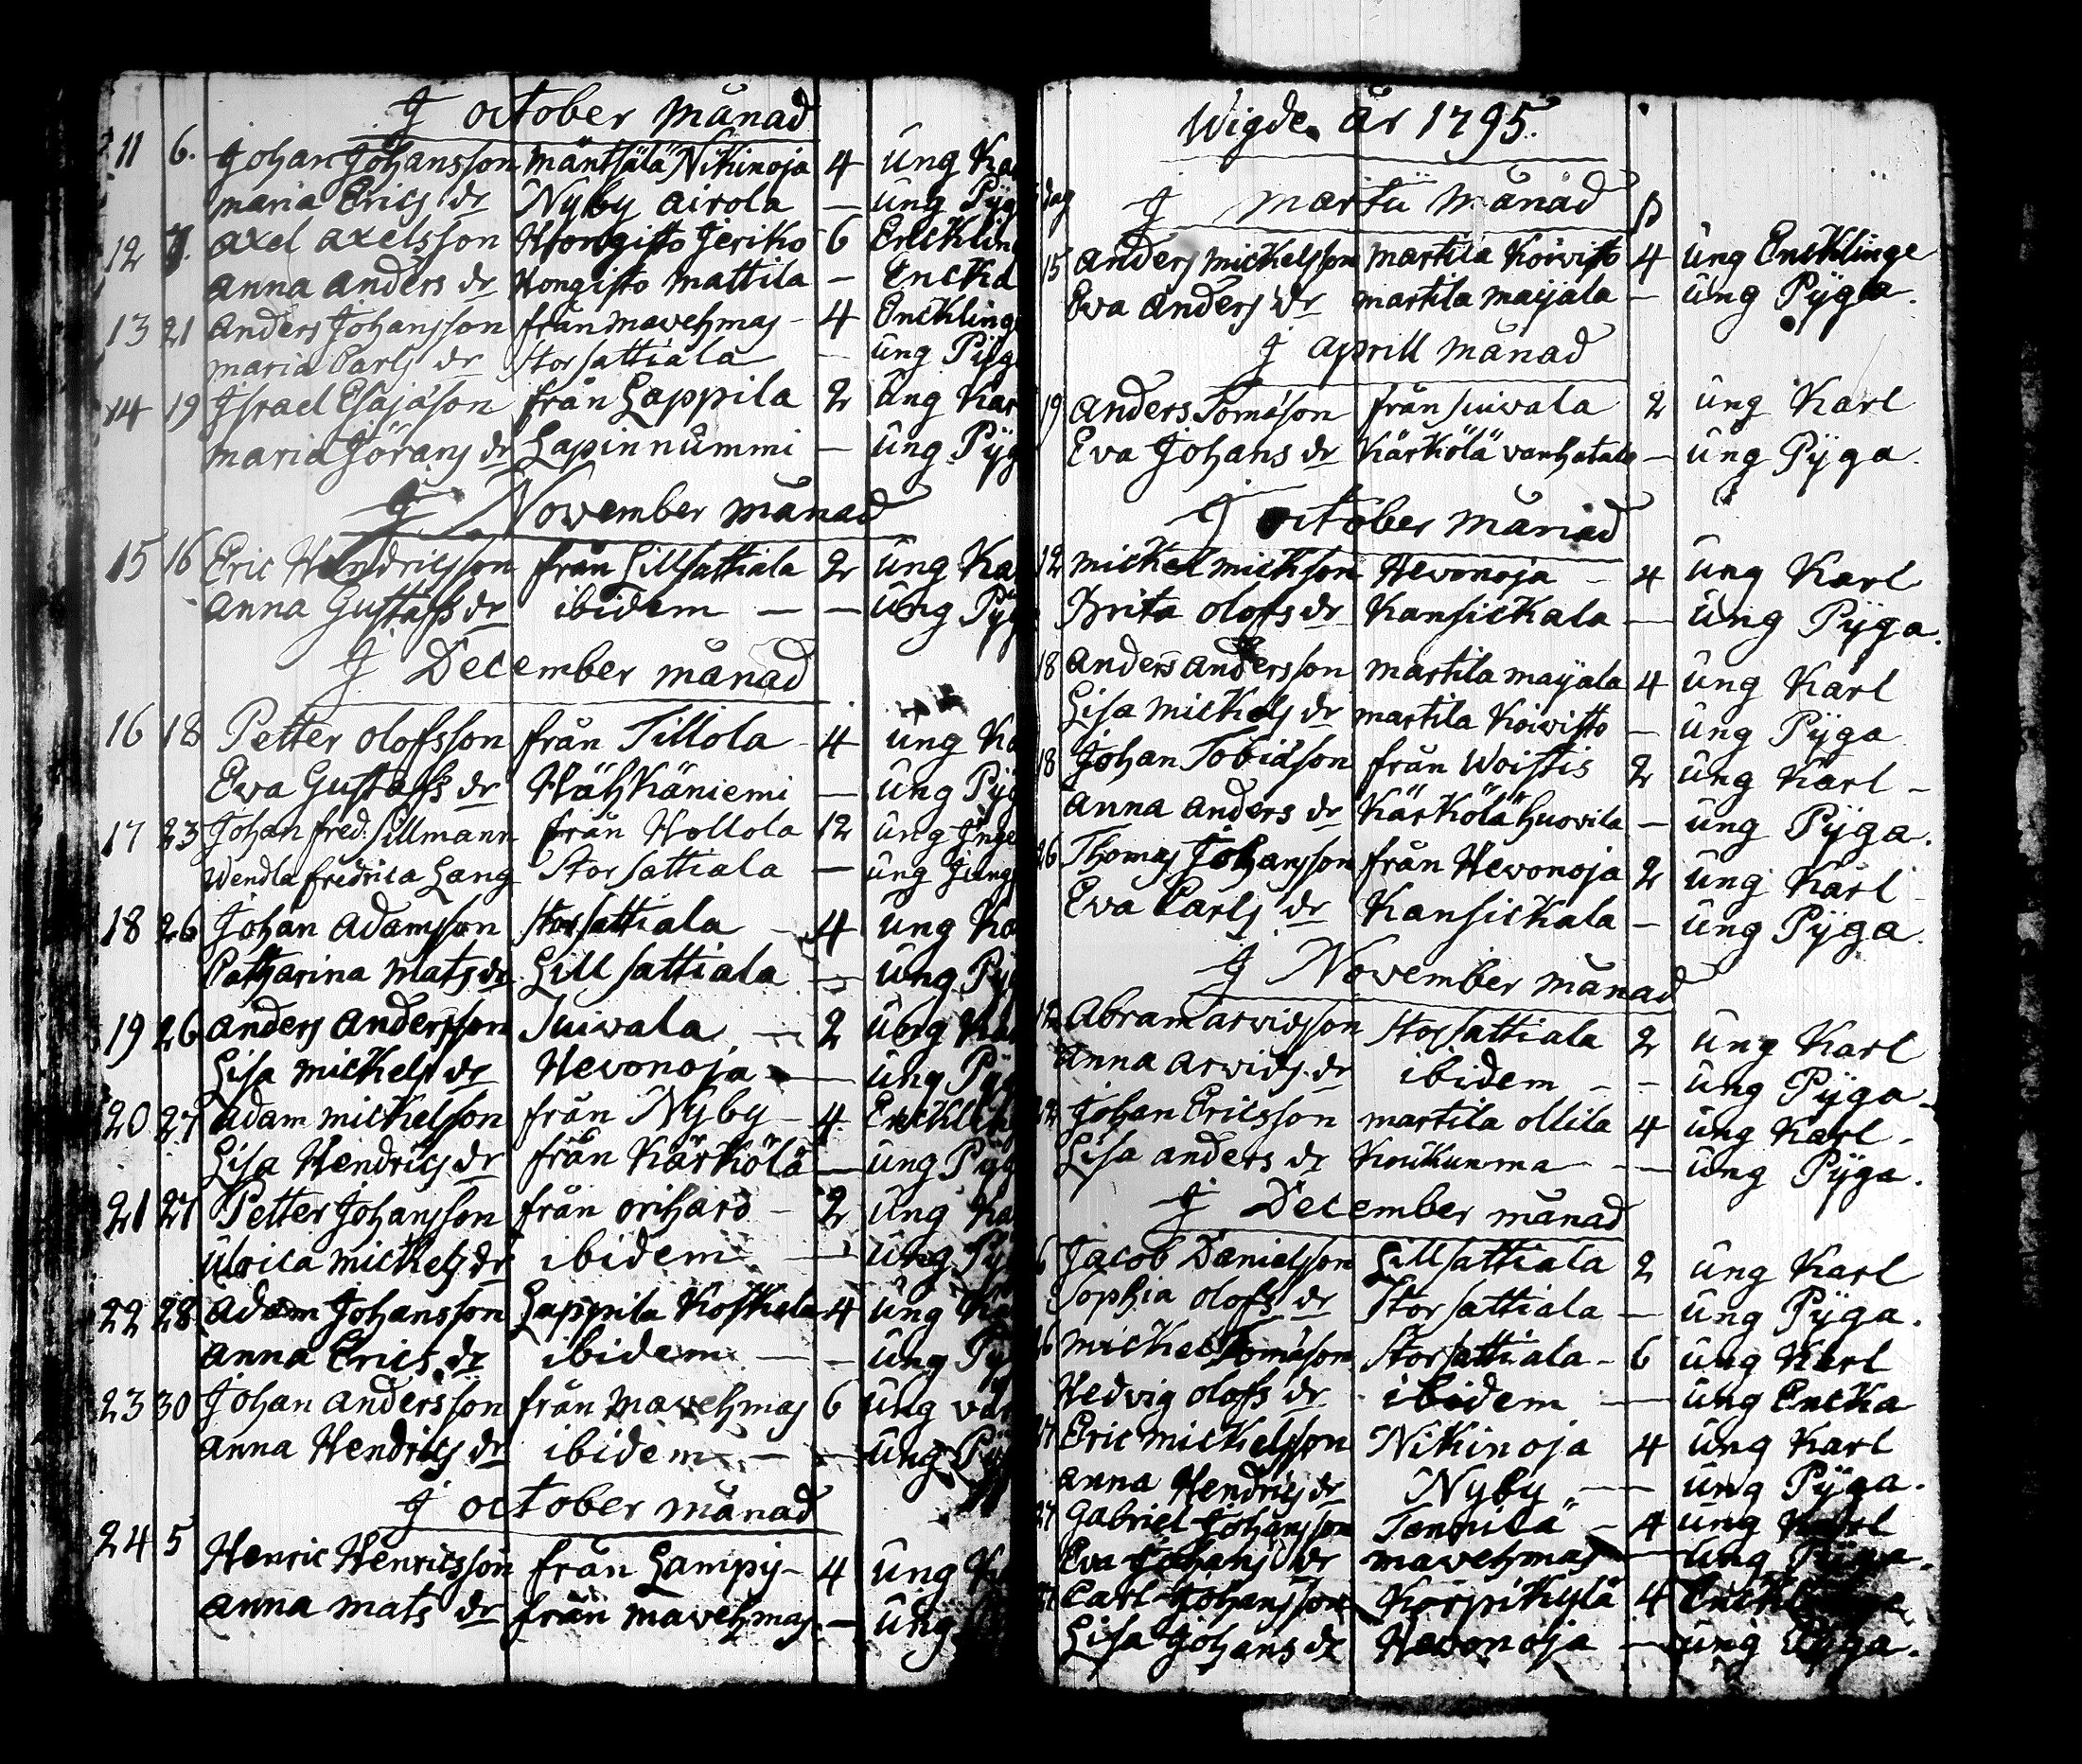 J October Månad
11 6. Johan Johansson Mäntsälä Nikinoja 4 ung Ka
Maria Erics dr Nyby Airola — ung Pyg
12 7. Axel Axelsson Hongisto Jeriko 6 Encklin
Anna Anders dr Hongisto Mattila — Encka
13 21 Anders Johansson från Mavehmas - 4 Encklinge
Maria Carls dr Storsattiala — ung Pyg
14 19 Israel Esajason från Lappila 2 ung Kar
Maria Görans dr Lapinnummi — ung Pyg
J November Månad
15 16 Eric Hendricsson från Lillsattiala 2 ung Ka
Anna Gustafs dr ibidem — — ung Pyg
J December Månad
16 18 Petter Olofsson från Tillola - 4 ung Ka
Eva Gustafs dr Hähkäniemi — ung Pyg
17 23 Johan Fred: Sillmann från Hollola 12 ung
Wendla Fredrica Lang Storsattiala — ung
18 26 Johan Adamsson Storsattiala - 4 ung Ka
Catharina Mats dr Lillsattiala — ung Pyg
19 26 Anders Andersson Juivala — 2 ung Ka
Lisa Mickels dr Hevonoja — ung Pyg
20 27 Adam Mickelsson från Nyby - 4 Encklin
Lisa Hendrics dr från Kärkölä — ung Pyg
21 27 Petter Johansson från Oriharo - 2 ung Ka
Ulrica Mickels dr ibidem — ung Py
22 28 Adam Johansson Lappila Koskela 4 ung Ka
Anna Erics dr ibidem — - ung Py
23 30 Johan Andersson från Mavehmas 6 ung
Anna Hendrics dr ibidem — - ung Py
J October Månad
24 5 Henric Henricsson från Lampis - 4 ung
Anna Mats dr från Mavehmas. — ung
Wigde År 1795.
dag J Martii Månad ß
15 Anders Mickelsson Martila Koivisto 4 ung Encklinge
Eva Anders dr Martila Maijala — ung Pyga.
J Aprill Månad
19 Anders Tomasson från Juivala 2 ung Karl
Eva Johans dr Kärkölä Vanhatalo — ung Pyga.
J October Månad
12 Mickel Mickson Hevonoja - 4 ung Karl
Brita Olofs dr Kansickala — ung Pyga.
18 Anders Andersson Martila Maijala 4 ung Karl
Lisa Mickels dr Martila Koivisto — ung Pyga
18 Johan Tobiason från Woistis 2 ung Karl -
Anna Anders dr Kärkölä Huovila — ung Pyga.
26 Thomas Johansson från Hevonoja 2 ung Karl -
Eva Carls dr Kansickala — ung Pyga.
J November Månad
12 Abram Arvidsson Storsattiala 2 ung Karl
Anna Arvids dr ibidem - - ung Pyga -
22 Johan Ericsson Martila Ollila 4 ung Karl -
Lisa Anders dr Koukunma — ung Pyga.
J December Månad
6 Jacob Danielsson Lillsattiala 2 ung Karl
Sophia Olofs dr Storsattiala — ung Pyga.
6 Mickel Tomason Storsattiala - 6 ung Karl
Hedvig Olofs dr ibidem — ung Encka
27 Eric Mickelsson Nikinoja 4 ung Karl
Anna Hendrics dr Nyby — ung Pyga.
27 Gabriel Johansson Tennilä - 4 ung Karl
Eva Johans dr Mavehmas — ung Pyga.
Carl Johansson Korpikylä 4 Encklinge
Lisa Johans dr Hevonoja — ung Pyga.